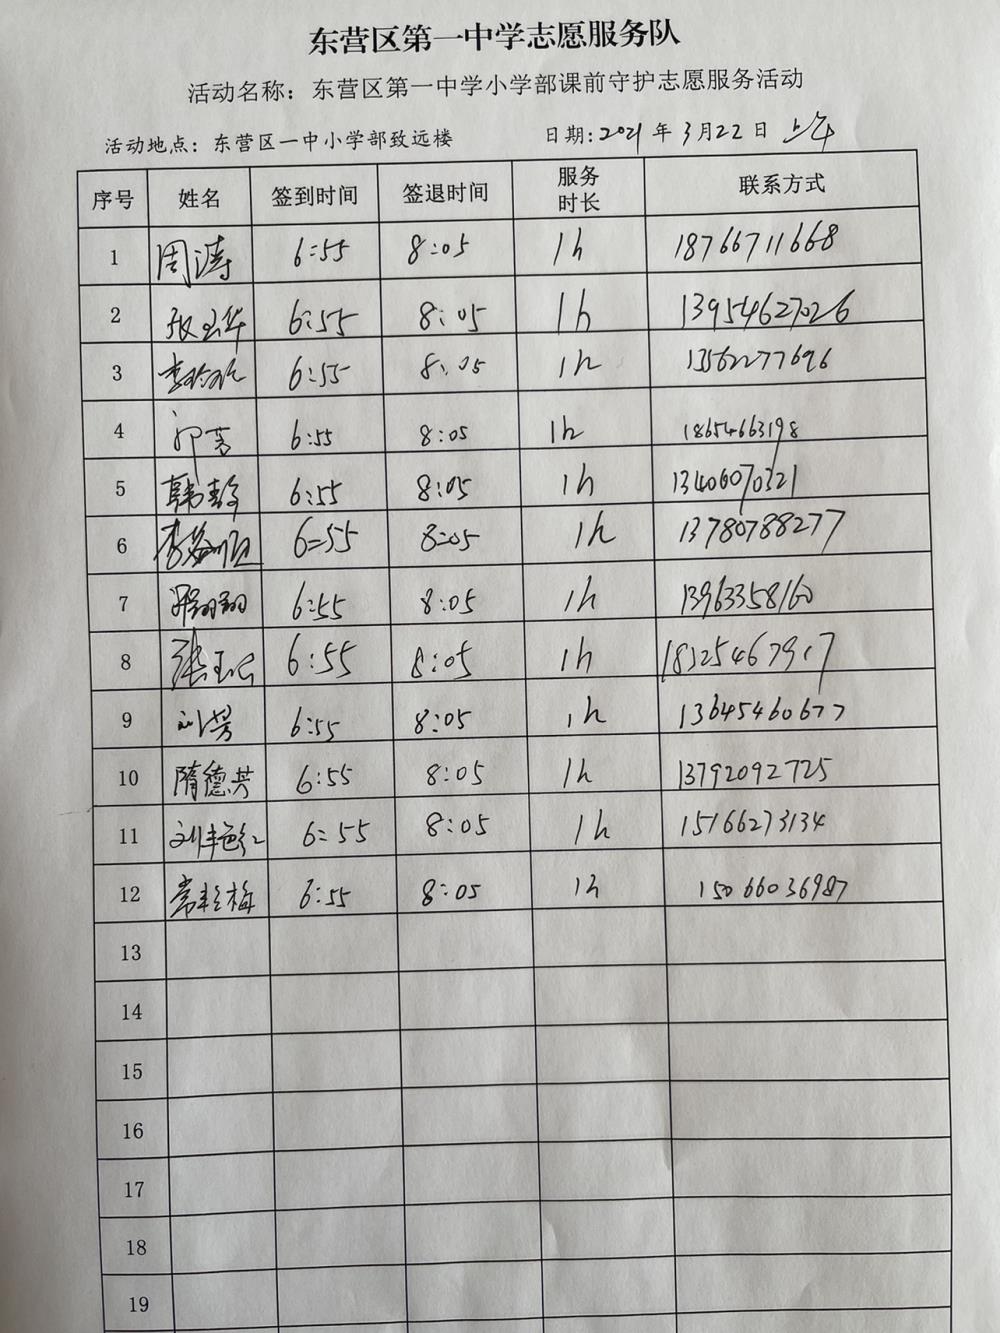 东营区第一中学志愿服务队
活动名称：东营区第一中学小学部课前守护志愿服务活动
活动地点：东营区一中小学部致远楼 日期：2021年3月22日 上午
序号 姓名 签到时间 签退时间 服务时长 联系方式
1 周涛 6:55 8:05 1h 18766711668
2 张玉华 6:55 8:05 1h 13954627026
3 6:55 8:05 1h 13562277696
4 6:55 8:05 1h 18654663198
5 6:55 8:05 1h 13406070321
6 6=55 8:05 1h 13780788277
7 6:55 8:05 1h 13963358160
8 6:55 8:05 1h 18325467917
9 刘芳 6:55 8:05 1h 13645460677
10 隋德共 6:55 8:05 1h 13792092725
11 6=55 8:05 1h 15166273134
12 6:55 8:05 1h 15066036987
13
14
15
16
17
18
19